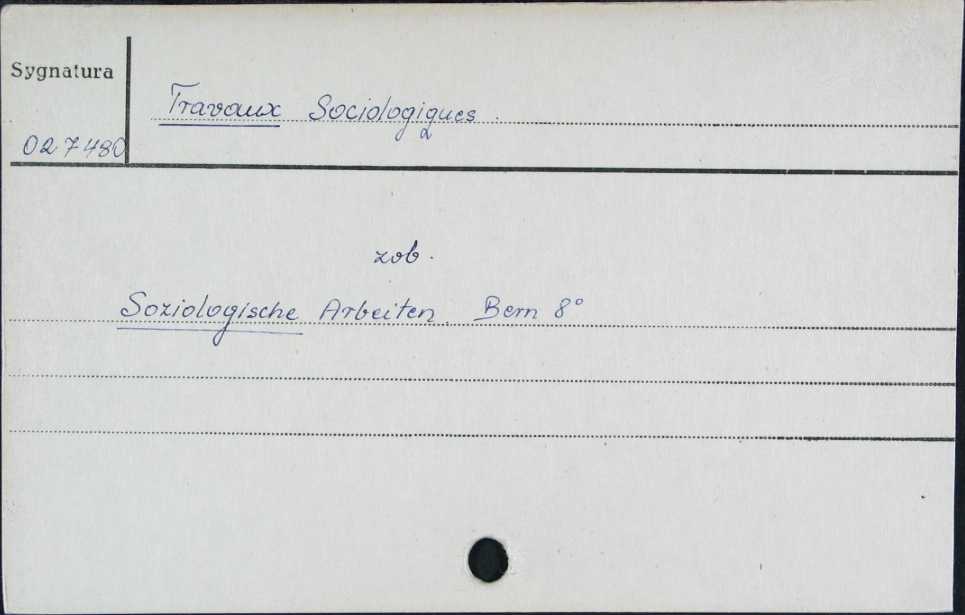 Sygnatura
Travaux Sociologiques.
027480
zob.
Soziologische Arbeiten. Bern 8°